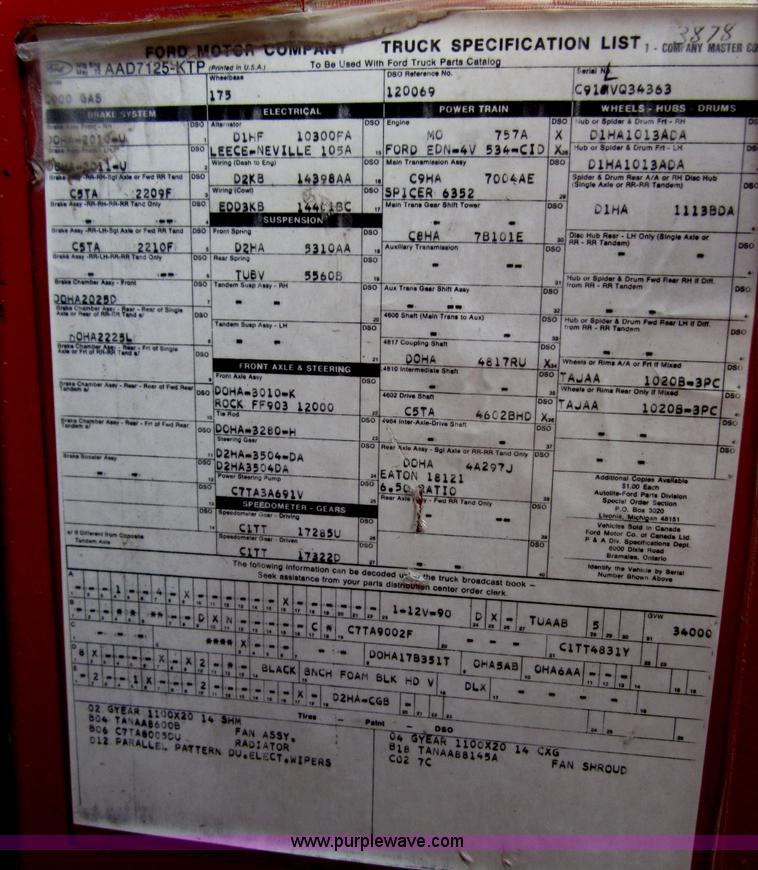 3878
FORD MOTOR COMPANY TRUCK SPECIFICATION LIST 1 - COMPANY MASTER CO
Ford AAD7125-KTP (Printed in U.S.A.) To Be Used With Ford Truck Parts Catalog
Wheelbase DSO Reference No. Serial No.
GAS 175 120069 VQ34363
BRAKE SYSTEM ELECTRICAL POWER TRAIN WHEELS - HUBS - DRUMS
DSO Alternator DSO Engine DSO Hub or Spider & Drum Frt - RH DSO
D1HF 10300FA MO 757A X D1HA1013ADA
LEECE-NEVILLE 105A FORD EDN-4V 534-CID X Hub or Spider & Drum Frt - LH
D1HA1013ADA
Wiring (Dash to Eng) Main Transmission Assy
D2KB 14398AA C9HA 7004AE
SPICER 6352
Spider & Drum Rear A/A or RH Disc Hub
(Single Axle or RR-RR Tandem)
D1HA 1113BDA
Brake Assy-RR-RH-Sgl Axle or Fwd RR Tand
C5TA 2209F
Wiring (Cowl)
EDD3KB
Main Trans Gear Shift Tower
C8HA 7B101E
Brake Assy-RR-RH-RR-RR Tand Only
SUSPENSION
Brake Assy-RR-LH-Sgl Axle or Fwd RR Tand
C5TA 2210F
Front Spring
D2HA 5310AA
Auxiliary Transmission
Disc Hub Rear - LH Only (Single Axle or
RR - RR Tandem)
Brake Assy-RR-LH-RR-RR Tand Only
Rear Spring
TUBV 5560B
Aux Trans Gear Shift Assy
Hub or Spider & Drum Fwd Rear RH If Diff.
from RR - RR Tandem
Brake Chamber Assy - Front
DOHA2025D
Tandem Susp Assy - RH
4606 Shaft (Main Trans to Aux)
Hub or Spider & Drum Fwd Rear LH If Diff.
from RR - RR Tandem
Brake Chamber Assy - Rear - Rear of Single
Axle or Rear of RR-RR Tand
DOHA2225L
Tandem Susp Assy - LH
4817 Coupling Shaft
DOHA 4817RU X
Wheels or Rims A/A or Frt If Mixed
TAJAA 1020B-3PC
Brake Chamber Assy - Rear - Frt of Single
Axle or Frt of RR-RR Tand
FRONT AXLE & STEERING
Front Axle Assy
DOHA-3010-K
ROCK FF903 12000
4819 Intermediate Shaft
Wheels or Rims Rear Only If Mixed
TAJAA 1020B-3PC
Brake Chamber Assy - Rear - Rear of Fwd Rear
Tandem
Tie Rod
DOHA-3280-H
4602 Drive Shaft
C5TA 4602BHD X
Brake Chamber Assy - Rear - Frt of Fwd Rear
Tandem
Steering Gear
D2HA-3504-DA
D2HA3504DA
4984 Inter-Axle-Drive Shaft
Brake Booster Assy
Power Steering Pump
C7TA3A691V
Rear Axle Assy - Sgl Axle or RR-RR Tand Only
DOHA 4A297J
EATON 18121
6.50 RATIO
Additional Copies Available
$1.00 Each
Autolite-Ford Parts Division
Special Order Section
P.O. Box 3020
Livonia, Michigan 48151
SPEEDOMETER - GEARS
Speedometer Gear - Driving
C1TT 17285U
Rear Axle Assy - Fwd RR Tand Only
Vehicles Sold in Canada
Ford Motor Co. of Canada Ltd.
P & A Div. Specifications Dept.
8000 Dixie Road
Bramalea, Ontario
If Different from Opposite
Tandem Axle
Speedometer Gear - Driven
C1TT 17322D
Identify the Vehicle by Serial
Number Shown Above
The following information can be decoded using the truck broadcast book -
Seek assistance from your parts distribution center order clerk.
A 1 - - 4 - X X 1-12V-90 D X - TUAAB 5 GVW 34000
B D X N C * C7TA9002F C1TT4831Y
C **** X DOHA17B351T OHA5AB OHA6AA
D 8 X - - X - X 2 BLACK BNCH FOAM BLK HD V DLX
E - 2 - - 1 X - - - 2 X D2HA-CGB
Tires - Paint - DSO
02 GYEAR 1100X20 14 SHM 04 GYEAR 1100X20 14 CXG
B04 TANAAB600B FAN ASSY. B18 TANAAB8145A FAN SHROUD
B06 C7TA8005DU RADIATOR C02 7C
D12 PARALLEL PATTERN DU.ELECT.WIPERS
www.purplewave.com